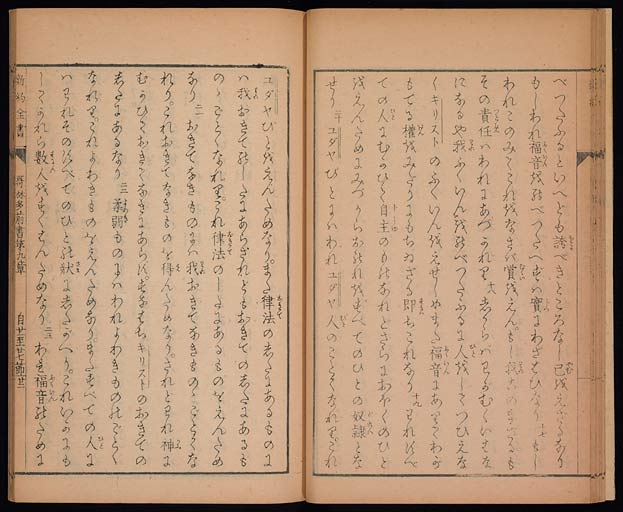 べつたふるといへども誇べきところなし已をえざるなり
もしわれ福音をのべつたへずば實にわざはひなり 十七 もし
われこのみてこれをなさば賞をえん。もし
その責任はわれにあづかれり 十八 しからばわがむくいはな
になるや我ふくいんをのべつたふるに人をしてつひえな
くキリストのふくいんをえせしめまた福音にありてわが
もてる權をみだりにもちゐざる即ちこれなり 十九 われはすべ
ての人にむかひて自主のものなれどさらにおほくの人
をえんためにみづからおのれをすべてのひとの奴隷とな
せり 二十 ユダヤびとにはわれユダヤ人のごとくなれり。これ
ユダヤびとをえんためなり。また律法のしたにあるものに
は我おきてのしたにあらざれどもおきてのしたにあるも
のゝごとくなれり。これ律法のしたにあるものをえんため
なり 二一 おきてなきものには我おきてなきものゝごとくな
れり。これおきてなきものを得んためなり。されどわれ神に
むかひておきてなきにあらず。すなはちキリストのおきての
したにあるなり 二二 弱ものにはわれよわきものゝごとく
なれり。これよわきものをえんためなり。またすべての人に
はわれそのすべてのひとの狀にしたがへり。これいかにも
してかれら數人をすくはんためなり 二三 われ福音のために
新約全書 哥林多前書第九章 自廿至廿七節 廿二